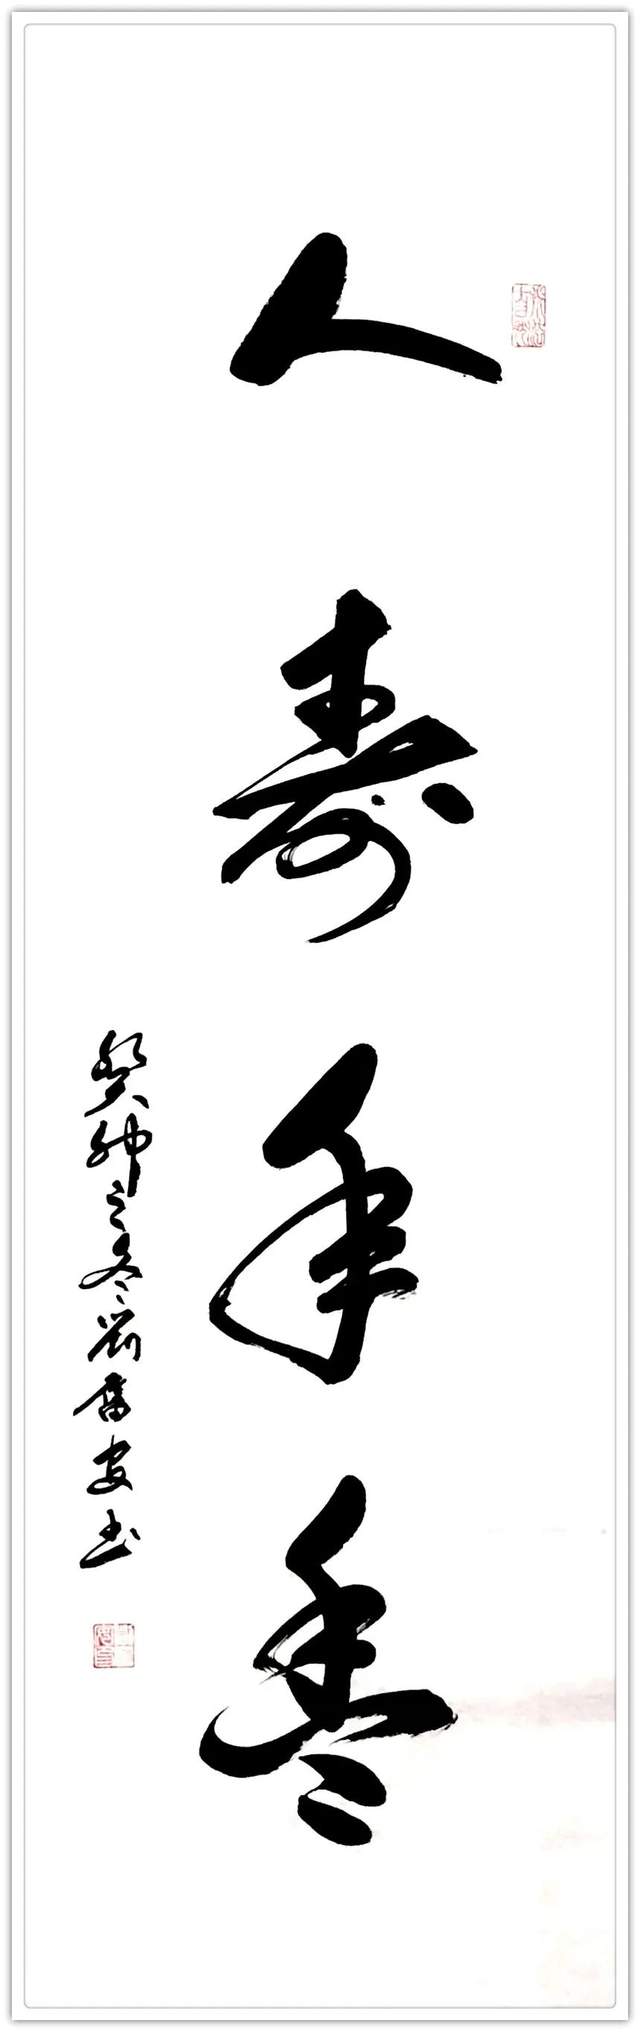 人寿年丰
癸卯之冬刘奋安书